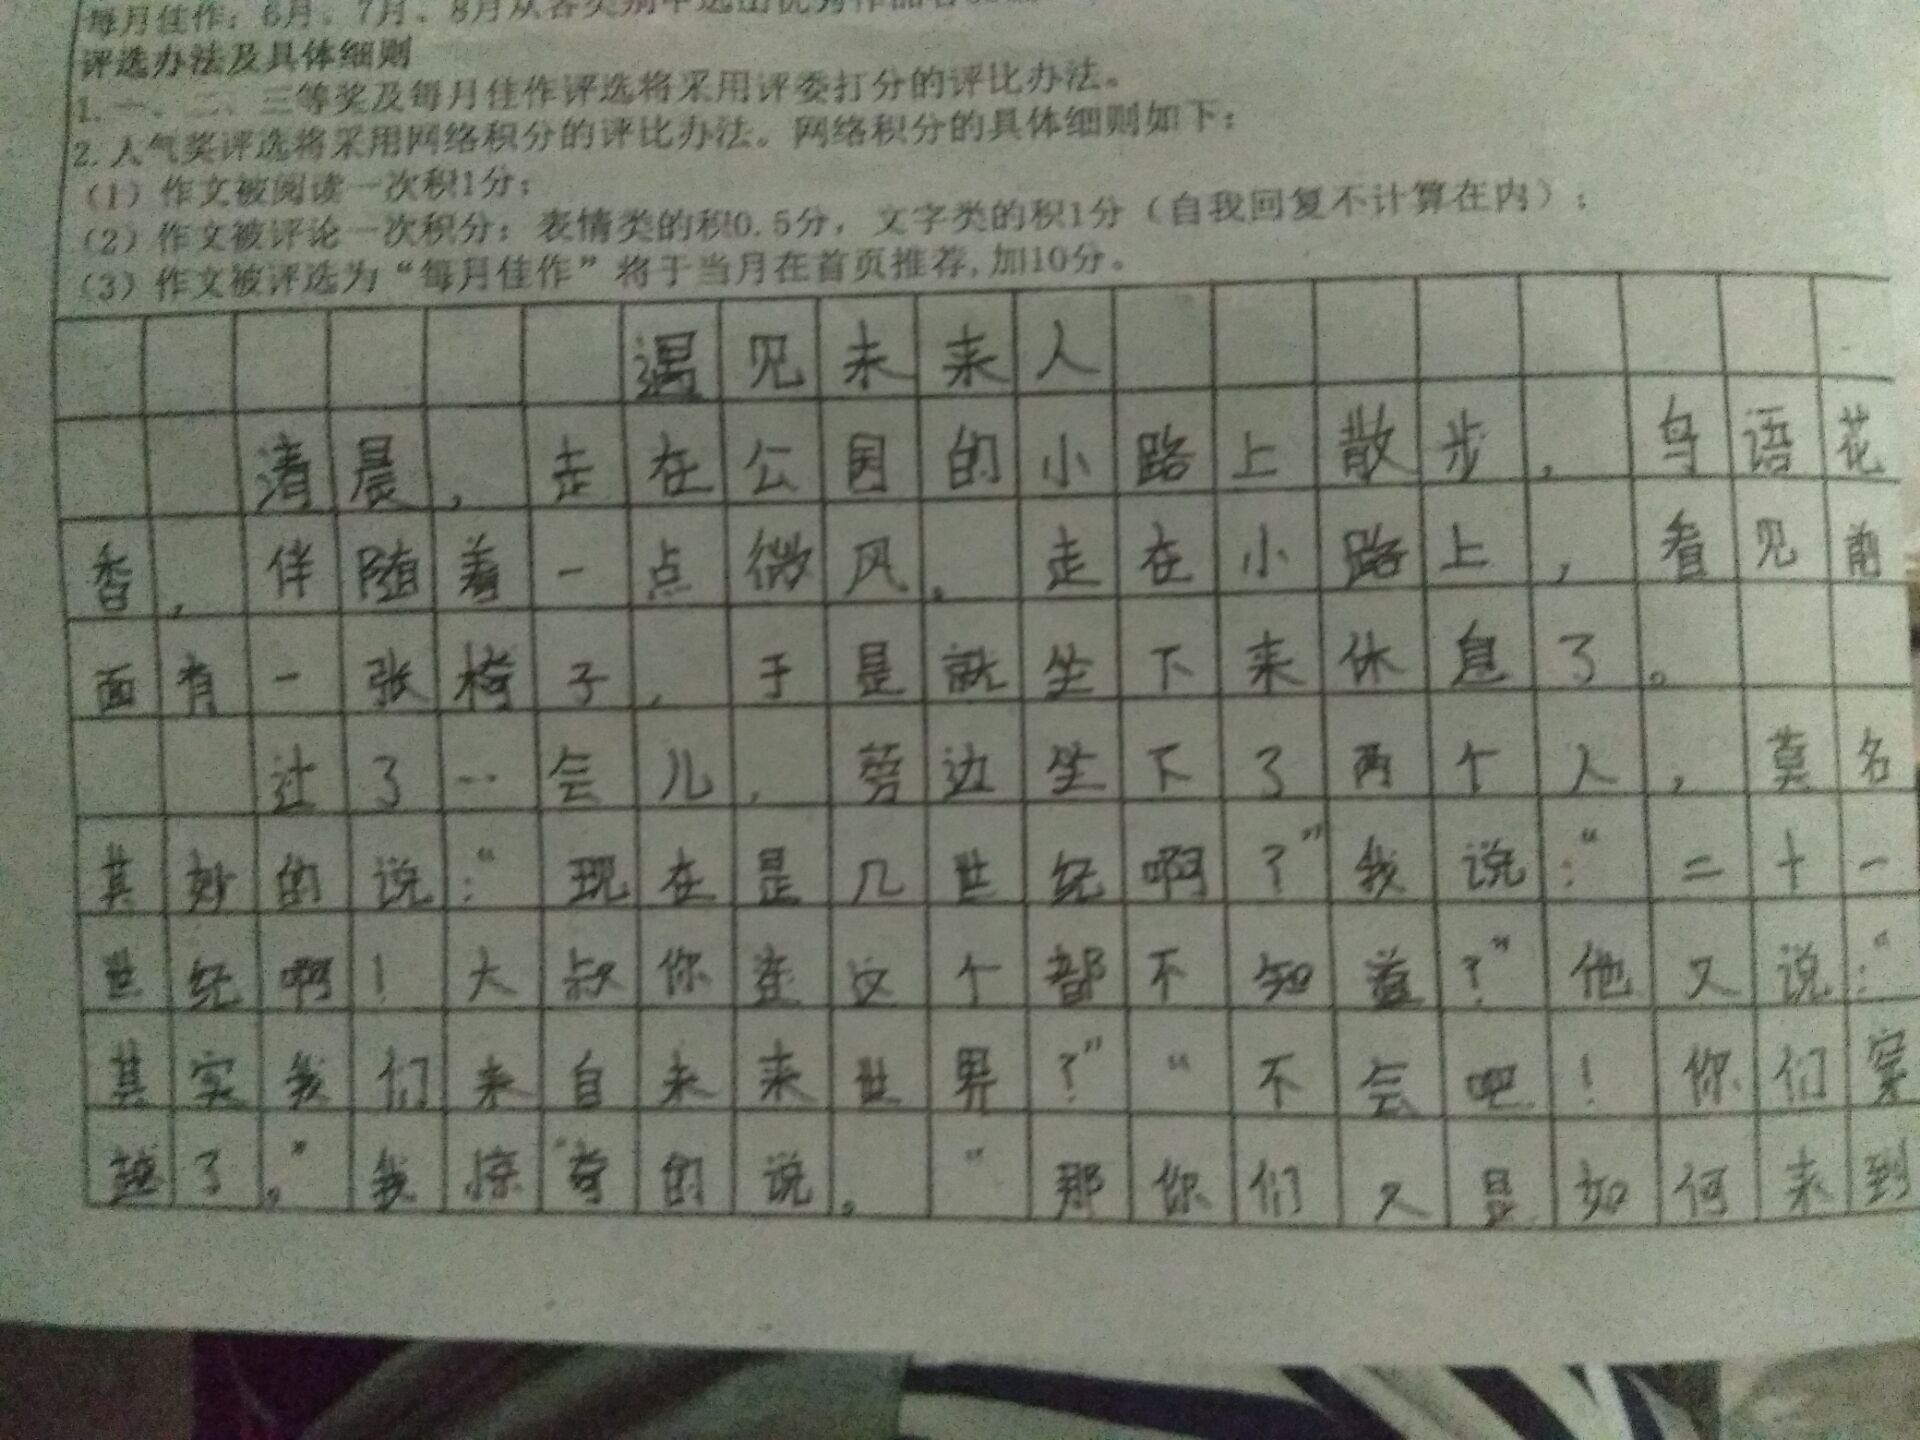 每月佳作：6月、7月、8月从各类别中选出优秀作品
评选办法及具体细则
1.一、二、三等奖及每月佳作评选将采用评委打分的评比办法。
2.人气奖评选将采用网络积分的评比办法。网络积分的具体细则如下：
（1）作文被阅读一次积1分；
（2）作文被评论一次积分：表情类的积0.5分，文字类的积1分（自我回复不计算在内）；
（3）作文被评选为“每月佳作”将于当月在首页推荐,加10分。
遇见未来人
清晨，走在公园的小路上散步，鸟语花
香，伴随着一点微风。走在小路上，看见前
面有一张椅子，于是就坐下来休息了。
过了一会儿，旁边坐下了两个人，莫名
其妙的说：“现在是几世纪啊？”我说：“二十一
世纪啊！大叔你连这个都不知道？”他又说：“
其实我们来自未来世界？”“不会吧！你们穿
越了。”我惊奇的说。“那你们又是如何来到